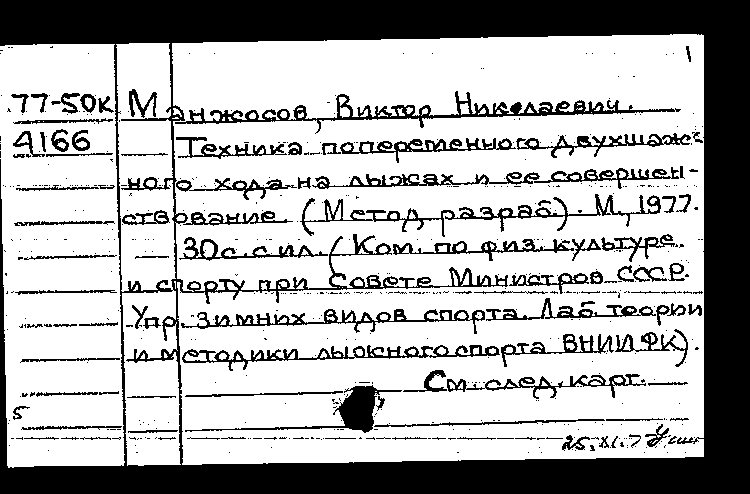 1
77-50к Манжосов, Виктор Николаевич.
4166 Техника попеременного двухшаж-
ного хода на лыжах и ее совершен-
ствование. (Метод. разраб.). М., 1977.
30с. с ил. (Ком. по физ. культуре
и спорту при Совете Министров СССР.
Упр. зимних видов спорта. Лаб. теории
и методики лыжного спорта ВНИИФК).
См. след. карт.
5
25.XI.7